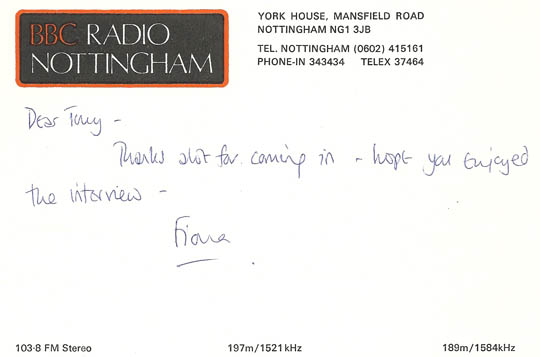 BBC RADIO
NOTTINGHAM
YORK HOUSE, MANSFIELD ROAD
NOTTINGHAM NG1 3JB
TEL. NOTTINGHAM (0602) 415161
PHONE-IN 343434 TELEX 37464
Dear Tony -
Thanks alot for coming in - hope you enjoyed
the interview -
Fiona
103·8 FM Stereo
197m/1521kHz
189m/1584kHz